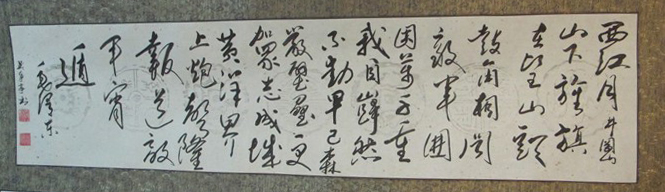 西江月 井岡山
山下旌旗
在望山頭
鼓角相闻
敌军围
困萬千重
我自巋然
不動早已森
嚴壁壘更
加眾志成城
黄洋界
上炮聲隆
報道敌
军宵
遁
毛澤东